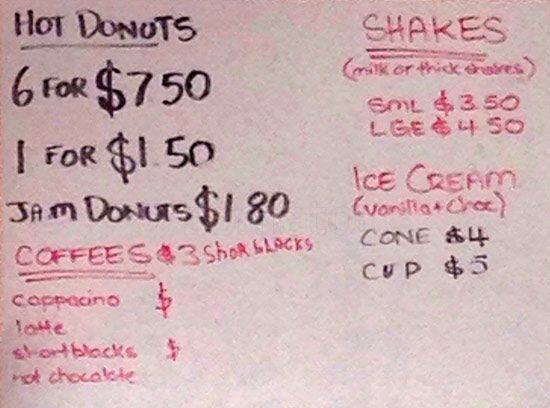 HOT DONUTS
6 FOR $7 50
1 FOR $1. 50
JAM DONUTS $1 80
COFFEES $3 Short blacks
cappacino $
latte
shortblacks $
hot chocolate
SHAKES
(milk or thick shakes)
SML $3.50
LGE $4 50
ICE CREAM
(vanilla + choc)
CONE $4
CUP $5